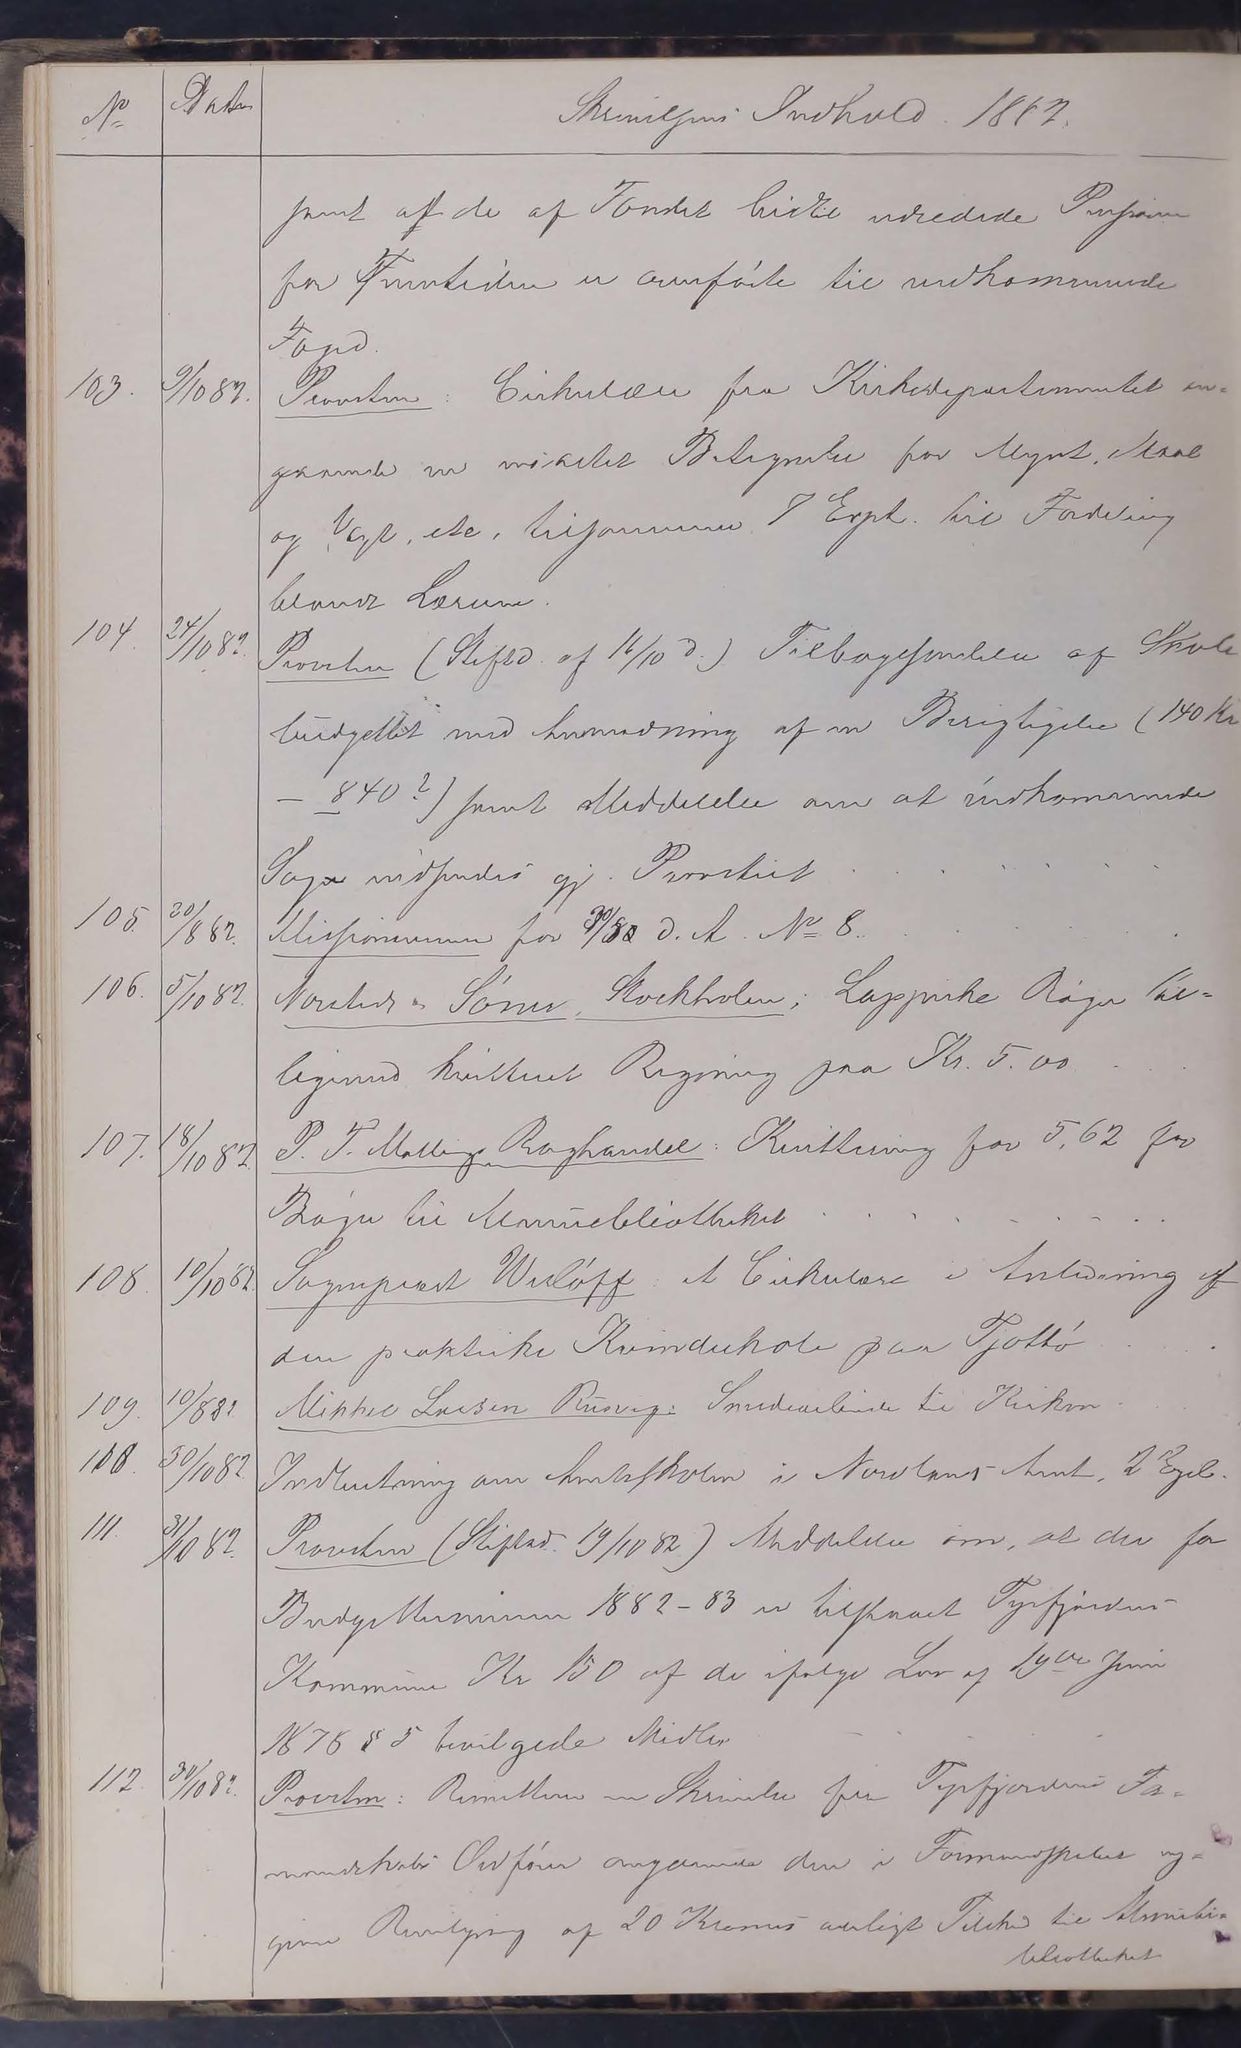 No Datum Skrivelsens Indhold. 1882.
samt af de af Fondet hidtil udredede Pensioner
for Fremtiden er overførte til vedkommende
Fond.
103. 9/10 82. Provsten: Cirkulære fra Kirkedepartementet an-
gaaende en Betegnelse for Mynt, Maal
og Vægt, etc, tilsammen 7 Expl. til Fordeling
blandt Lærerne.
104. 24/10 82. Provsten (Stiftsd. af 16/10 d.) Tilbagesendelse af Skole
budgettet med Anmodning af en Berigtigelse (140 Kr
– 840?) samt Meddelelse om at vedkommende
Sager indsendes gj. Provstiet . . . . . .
105. 30/8 82. for 30/8 82 d. A. No 8. . . . . . .
106. 5/10 82. Norsteds & Søner, Stockholm; Lappiske Bøger til-
ligemed kvitteret Regning paa Kr. 5.00 . . .
107. 18/10 82. P. T. Mallings Boghandel: Kvittering for 5,62 for
Bøger til Almuebibliotheket . . . . . . .
108. 10/10 82. Sogneprest Wisløff: et Cirkulære i Anledning af
den praktiske Kvindeskole paa Tjøttø . . . .
109. 10/8 82. Mikkel Larsen : Smedearbeide til Kirken .
110. 30/10 82. Indbydning om Amtsskolen i Nordlands Amt, 2 Expl.
111. 31/10 82. Provsten (Stiftsd. 19/10 82) Meddelelse om, at der for
Budgetterminen 1882–83 er tilstaaet Tysfjordens
Kommune Kr 150 af de ifølge Lov af 19de Juni
1878 § 5 bevilgede Midler
112. 30/10 82. Provsten: Remitteret en Skrivelse fra Tysfjordens For-
mandskabs Ordfører angaaende den i Formandskabet
Bevilgning af 20 Kroners aarligt Tilskud til Almue-
bibliotheket